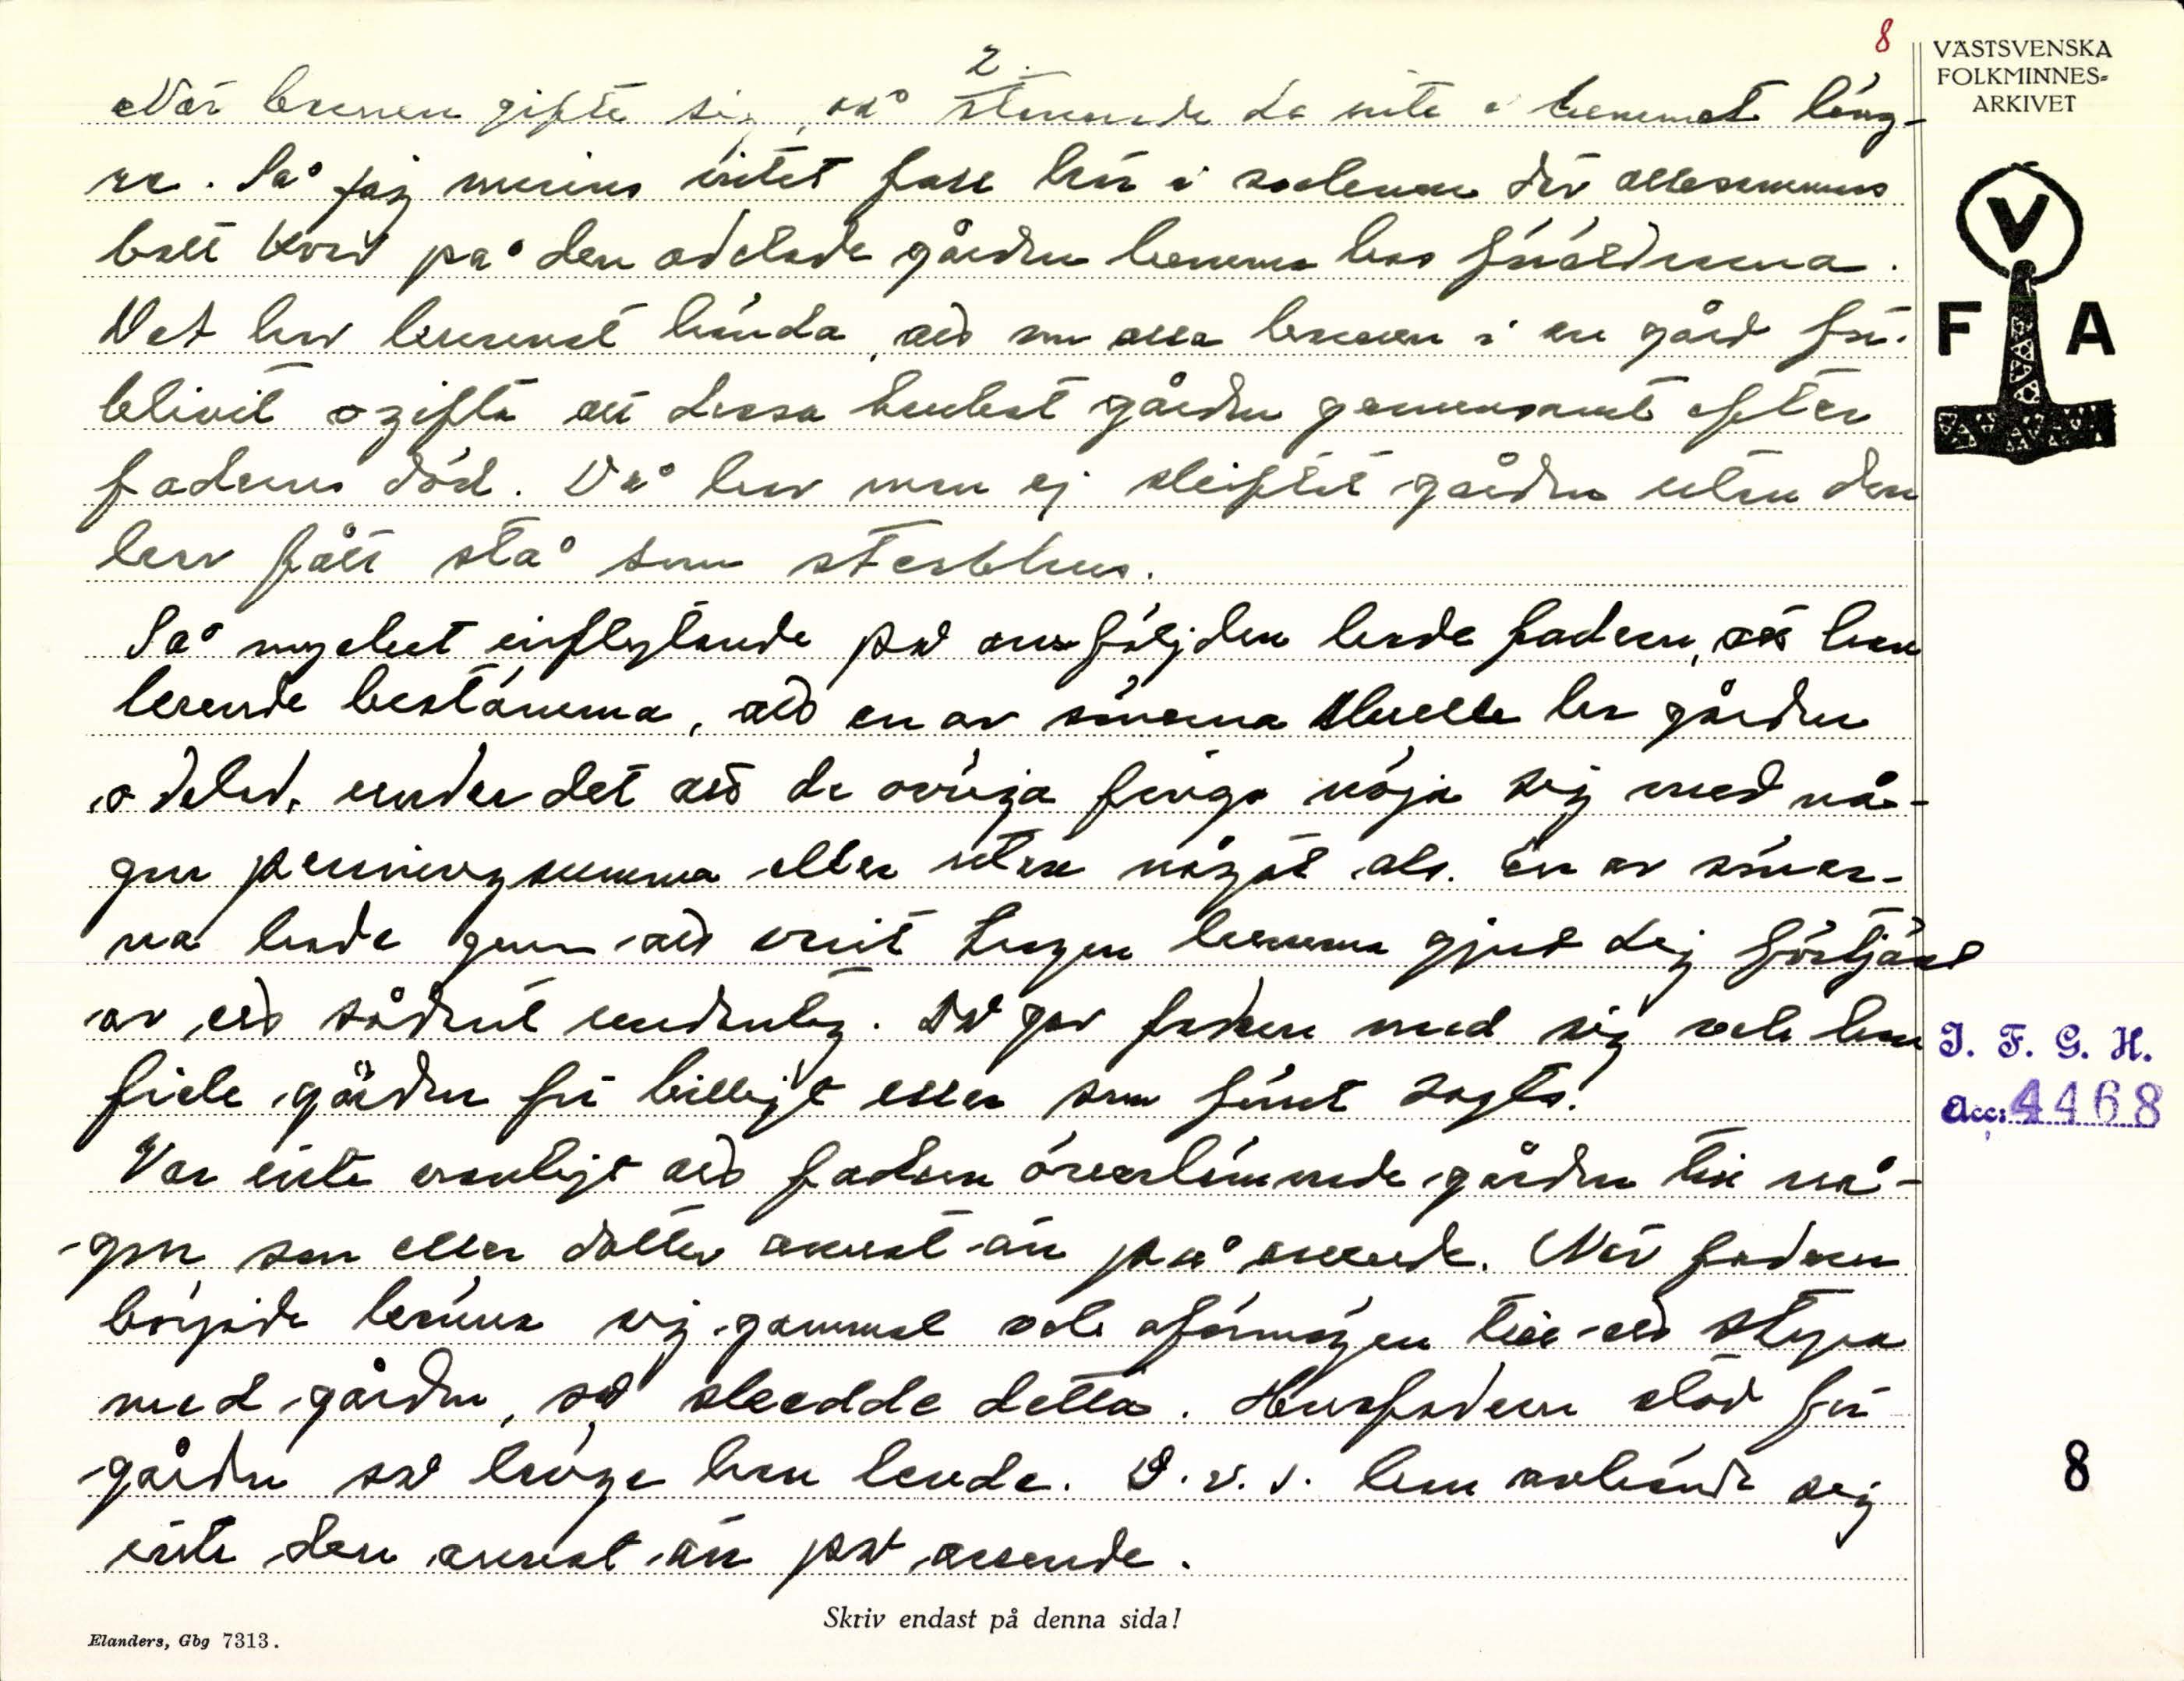 8
2.
När barnen gifte sig, så stannade de inte i hemmet läng-
re. Så jag minns intet fall här i socknen där allesammans
levt kvar på den odelade gården hemma hos föräldrarna.
Det har kunnat hända, att om alla barnen i en gård för-
blivit ogifta att dessa brukat gården gemensamt efter
faderns död. Då har man ej skiftat gården utan den
har fått stå som sterbhus.
Så mycket inflytande på arvföljden hade fadern, att han
kunde bestämma, att en av sönerna skulle ha gården
odelad, under det att de övriga fingo nöja sig med nå-
gon penningsumma eller utan något als. En av söner-
na hade genom att varit trogen hemma gjort sig förtjänt
av ett sådant undantag. Då gav fadern med sig och han
fick gården för billigt eller som först sagts.
Var inte vanligt att fadern överlämnade gården till nå-
gon son eller dotter annat än på arrende. När fadern
började känna sig gammal och oförmögen till att styra
med gården, så skedde detta. Husfadern stod för
gården så länge han levde. D.v.s. han avhände sig
inte den annat än på arrende.
Skriv endast på denna sida!
Elanders, Gbg 7313.
VÄSTSVENSKA
FOLKMINNES-
ARKIVET
V
F A
I. F. G. H.
Acc: 4468
8